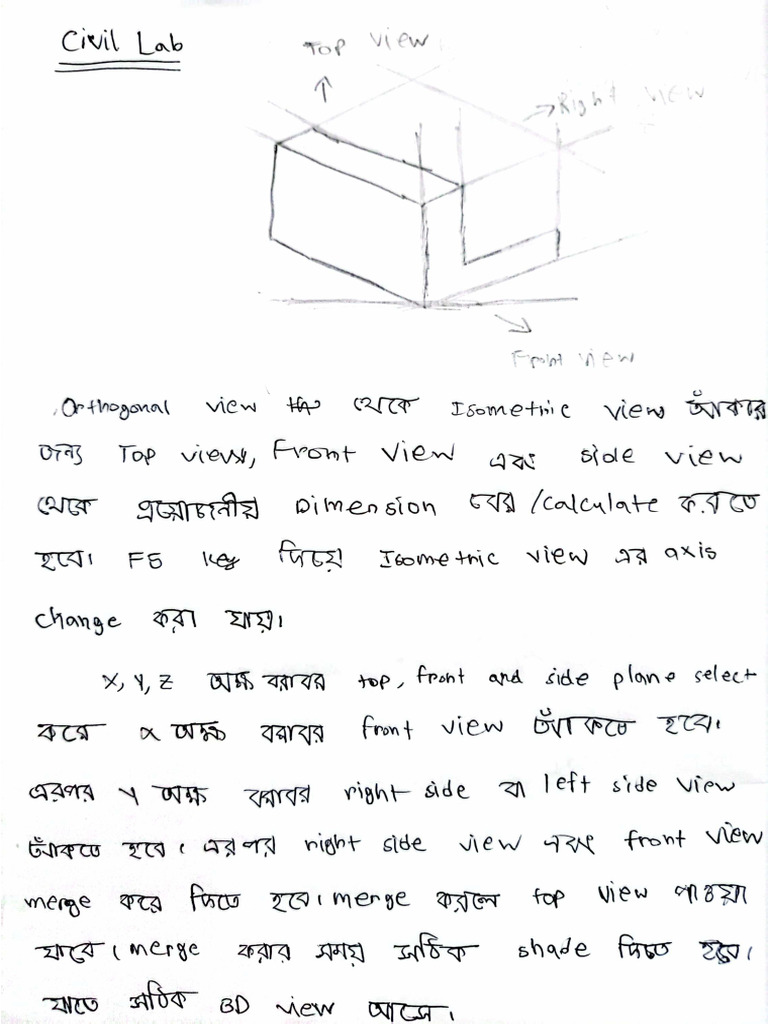 Civil Lab
Top view
Right view
Front view
Orthogonal view থেকে Isometric view আঁকার
জন্য Top view, Front view এবং side view
থেকে প্রয়োজনীয় Dimension বের /calculate করতে
হবে। F5 key দিয়ে Isometric view এর axis
change করা যায়।
X, Y, Z অক্ষ বরাবর top, front and side plane select
করে x অক্ষ বরাবর front view আঁকতে হবে।
এরপর Y অক্ষ বরাবর right side বা left side view
আঁকতে হবে। এরপর right side view এবং front view
merge করে দিতে হবে। merge করলে top view পাওয়া
যাবে। merge করার সময় সঠিক shade দিতে হবে।
যাতে সঠিক 3D view আসে।